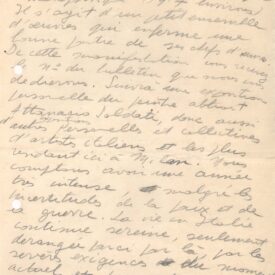 Il s'agit d'un petit ensemble
d'œuvres qui enferme une
bonne partie de ses chefs d'œuvre.
De cette manifestation
le n° du bulletin que nous
dédierons. Suivra une exposition
personnelle du peintre abstrait
Athanase Soldati, donc aussi
d'autres personnelles et collectives
d'artistes italiens et les plus
ici à Milan. Nous
comptons avoir une année
très intense, malgré les
incertitudes de la paix et de
la guerre. La vie en Italie
continue sereine, seulement
dérangée parci par là, par les
sévères exigences du moment
actuel